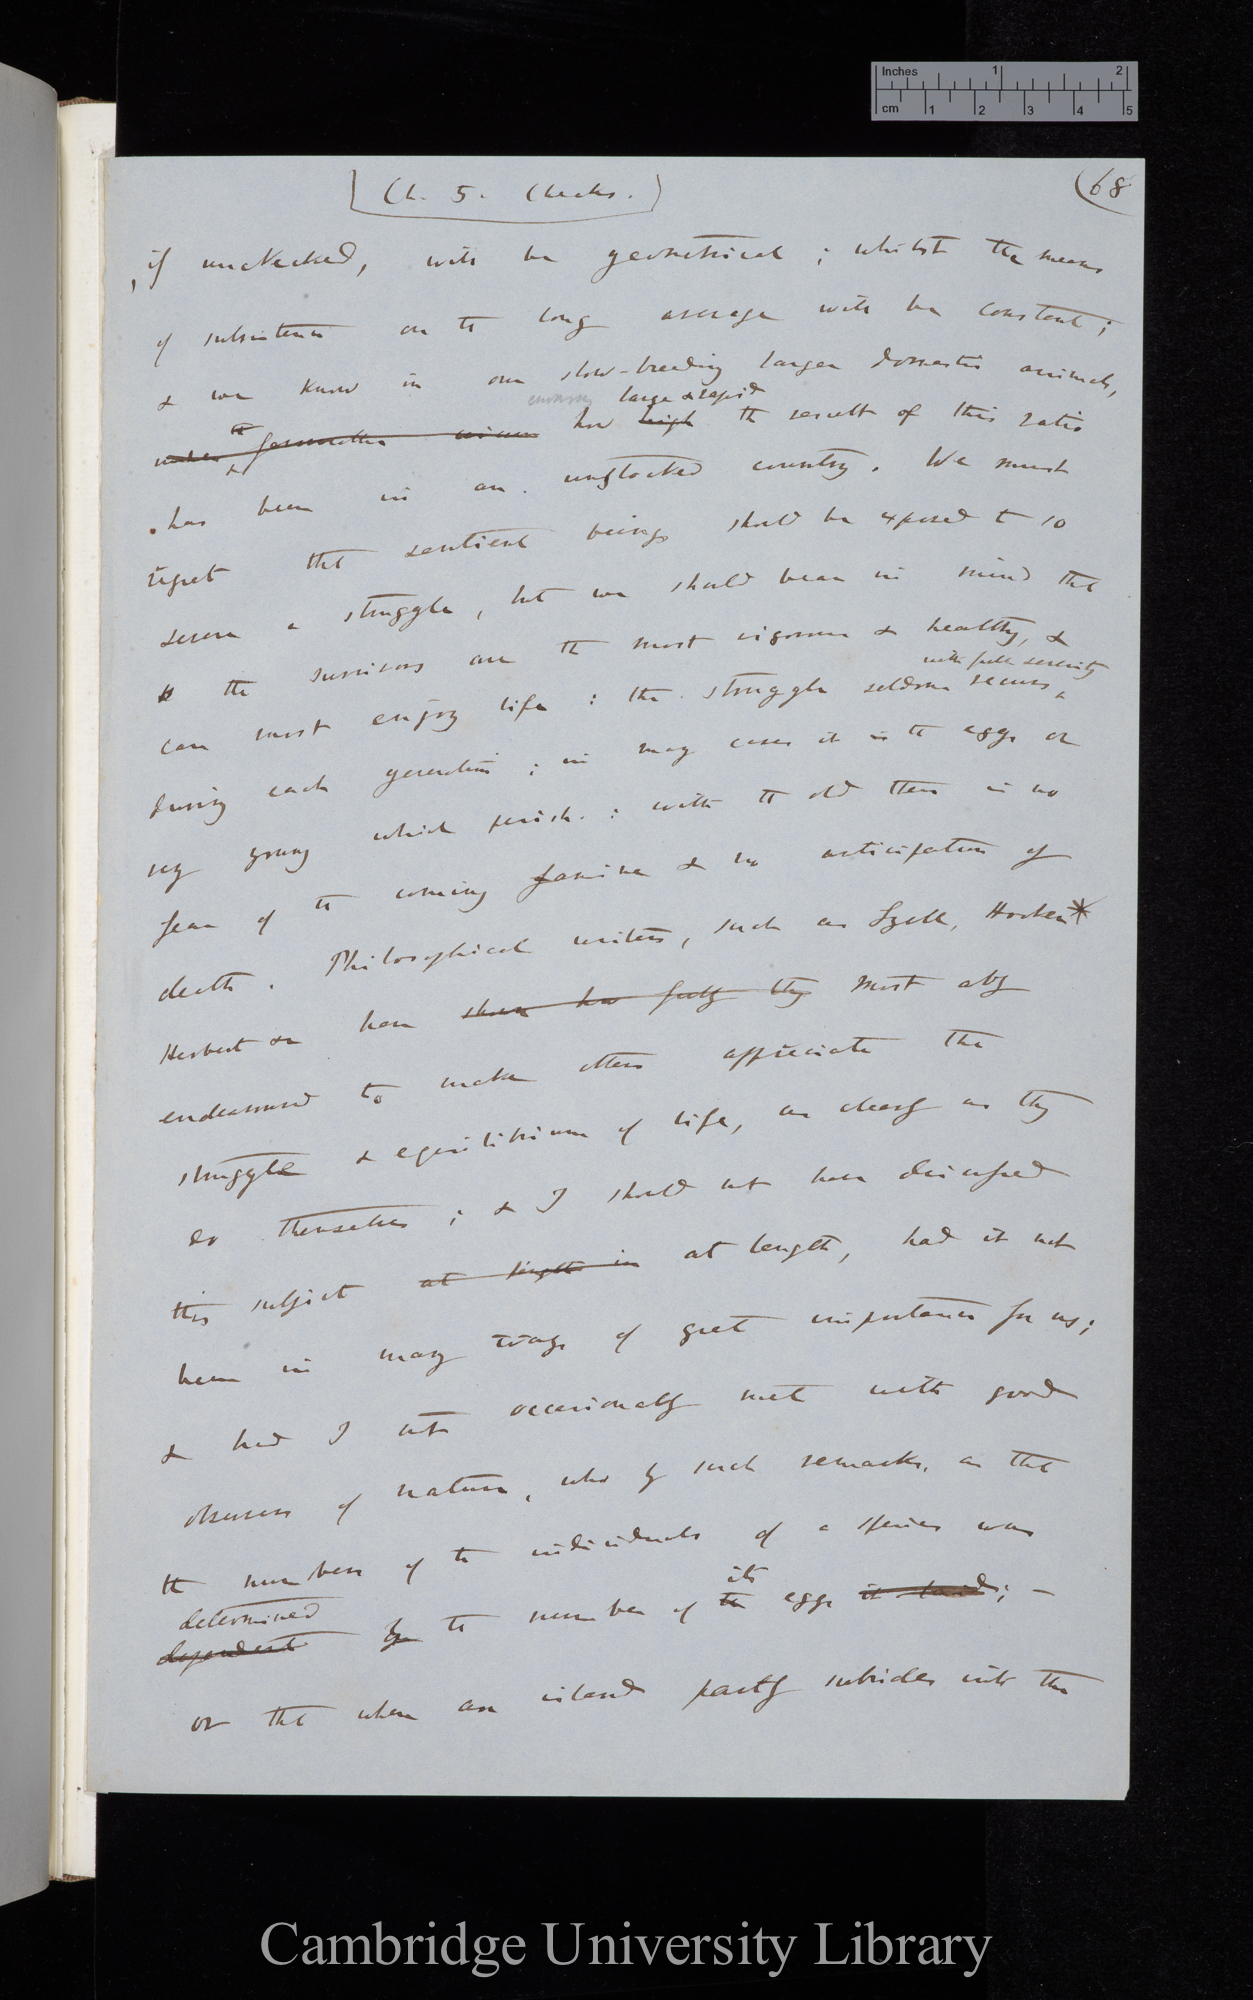 Inches 1 2
cm 1 2 3 4 5
Ch. 5. Checks.
68
, if unchecked, will be geometrical; whilst the means
of subsistence on the long average will be constant;
& we know in our slow-breeding larger domestic animals,
large & rapid
under the favourable how high the result of this ratio
has been in an unstocked country. We must
regret that sentient beings should be exposed to so
severe a struggle, but we should bear in mind that
the survivors are the most vigorous & healthy, &
with full severity
can most enjoy life: the struggle seldom recurs
during each generation; in many cases it is the eggs or
very young which perish: with the old there is no
fear of the coming famine & no anticipation of
death. Philosophical writers, such as Lyell, Hooker*
Herbert &c have shown how fully they most ably
endeavoured to make others appreciate the
struggle & equilibrium of life, as clearly as they
do themselves; & I should not have discussed
this subject at length in at length, had it not
been in many ways of great importance for us;
& had I not occasionally met with good
observers of nature, who by such remarks, as that
the number of the individuals of a species was
determined its
dependent by the number of the eggs it laid; —
or that when an island partly subsides into the
Cambridge University Library